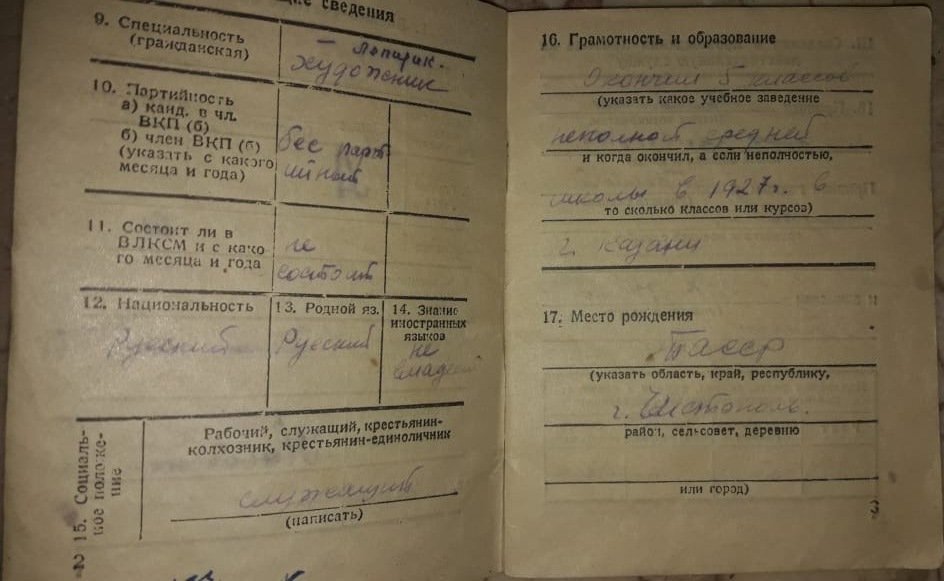 щие сведения
9. Специальность
(гражданская)
художник
10. Партийность
а) канд. в чл.
ВКП (б)
б) член ВКП (б)
(указать с какого
месяца и года)
бес парт
ийный
11. Состоит ли в
ВЛКСМ и с како
го месяца и года
не
состоит
12. Национальность
Русский
13. Родной яз.
Русский
14. Знание
иностранных
языков
не
15. Социаль-
ное положе-
ние
Рабочий, служащий, крестьянин-
колхозник, крестьянин-единоличник
служащий
(написать)
2
16. Грамотность и образование
Окончил 5 классов
(указать какое учебное заведение
неполной средней
и когда окончил, а если неполностью,
школы в 1927г. в
то сколько классов или курсов)
г. Казани
17. Место рождения
Тасср
(указать область, край, республику,
г. Чистополь.
район, сельсовет, деревню
или город)
3